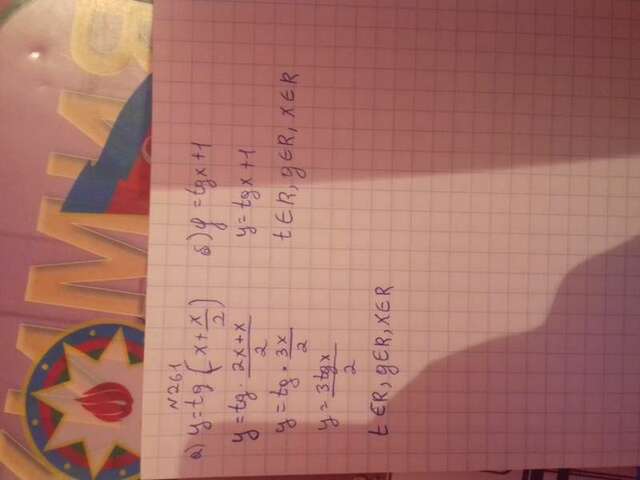 ХИМИЯ
№261
а) y=tg(x+x/2)
y=tg·2x+x/2
y=tg·3x/2
y=3tgx/2
t∈R, g∈R, x∈R
б) y=tgx+1
y=tgx+1
t∈R, g∈R, x∈R